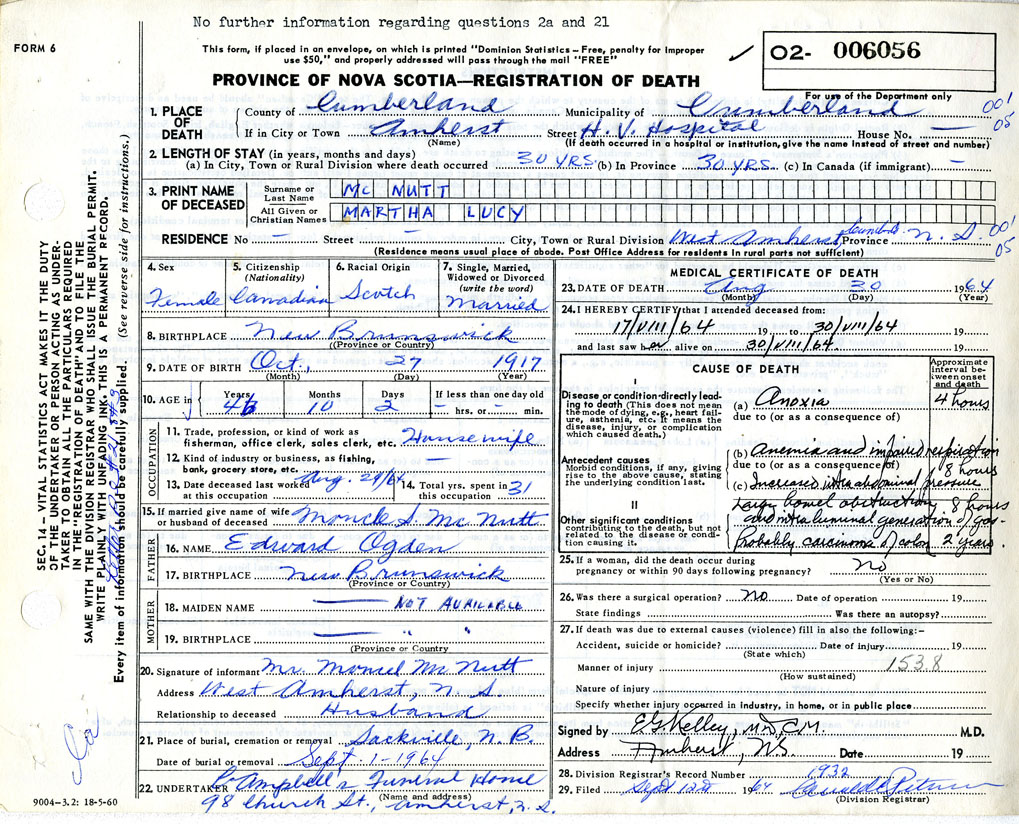 No further information regarding questions 2a and 21
FORM 6
This form, if placed in an envelope, on which is printed "Dominion Statistics – Free, penalty for improper
use $50," and properly addressed will pass through the mail "FREE"
02- 006056
For use of the Department only
PROVINCE OF NOVA SCOTIA—REGISTRATION OF DEATH
SEC. 14 – VITAL STATISTICS ACT MAKES IT THE DUTY
OF THE UNDERTAKER OR PERSON ACTING AS UNDER-
TAKER TO OBTAIN ALL THE PARTICULARS REQUIRED
IN THE "REGISTRATION OF DEATH" AND TO FILE THE
SAME WITH THE DIVISION REGISTRAR WHO SHALL ISSUE THE BURIAL PERMIT.
WRITE PLAINLY WITH UNFADING INK. THIS IS A PERMANENT RECORD.
Every item of information should be carefully supplied. (See reverse side for instructions.)
1. PLACE OF DEATH
County of Cumberland Municipality of Cumberland 001
If in City or Town Amherst Street H. V. Hospital House No. — 05
(Name) (If death occurred in a hospital or institution, give the name instead of street and number)
2. LENGTH OF STAY (in years, months and days)
(a) In City, Town or Rural Division where death occurred 30 YRS. (b) In Province 30 YRS. (c) In Canada (if immigrant) –
3. PRINT NAME OF DECEASED
Surname or Last Name MC NUTT
All Given or Christian Names MARTHA LUCY
RESIDENCE No – Street – City, Town or Rural Division West Amherst, Cumb. Province N. S. 001
05
(Residence means usual place of abode. Post Office Address for residents in rural parts not sufficient)
4. Sex Female
5. Citizenship (Nationality) Canadian
6. Racial Origin Scotch
7. Single, Married, Widowed or Divorced (write the word) Married
8. BIRTHPLACE New Brunswick
(Province or Country)
9. DATE OF BIRTH Oct., 27 1917
(Month) (Day) (Year)
10. AGE in Years 46 Months 10 Days 2 If less than one day old – hrs. or – min.
OCCUPATION
11. Trade, profession, or kind of work as
fisherman, office clerk, sales clerk, etc. Housewife
12. Kind of industry or business, as fishing,
bank, grocery store, etc. —
13. Date deceased last worked at this occupation Aug. 29/64 14. Total yrs. spent in this occupation 31
15. If married give name of wife
or husband of deceased Monck S. Mc Nutt
FATHER
16. NAME Edward Ogden
17. BIRTHPLACE New Brunswick
(Province or Country)
MOTHER
18. MAIDEN NAME — NOT AVAILABLE
19. BIRTHPLACE — " "
(Province or Country)
20. Signature of informant Mr. Mc Nutt
Address West Amherst, N. S
Relationship to deceased Husband
21. Place of burial, cremation or removal Sackville, N. B.
Date of burial or removal Sept. 1-1964
22. UNDERTAKER Campbell's Funeral Home
(Name and address)
98 Church St., Amherst, N. S.
9004-3.2: 18-5-60
MEDICAL CERTIFICATE OF DEATH
23. DATE OF DEATH Aug 30 1964
(Month) (Day) (Year)
24. I HEREBY CERTIFY that I attended deceased from:
17/VIII/64 19 to 30/VIII/64 19
and last saw her alive on 30/VIII/64. 19
CAUSE OF DEATH
Approximate interval between onset and death
I
Disease or condition directly leading to death (This does not mean the mode of dying, e.g., heart failure, asthenia, etc. It means the disease, injury, or complication which caused death.)
(a) Anoxia 4 hours
due to (or as a consequence of)
Antecedent causes
Morbid conditions, if any, giving rise to the above cause, stating the underlying condition last.
(b) Anemia and impaired respiration
due to (or as a consequence of) 8 hours
(c) Increased intra abdominal pressure
II
Other significant conditions contributing to the death, but not related to the disease or condition causing it.
Large bowel obstruction 8 hours
and intra luminal generation of gas.
Probably carcinoma of colon 2 years.
25. If a woman, did the death occur during
pregnancy or within 90 days following pregnancy? No
(Yes or No)
26. Was there a surgical operation? No Date of operation 19
State findings Was there an autopsy?
27. If death was due to external causes (violence) fill in also the following:–
Accident, suicide or homicide? Date of injury 19
(State which)
Manner of injury 153.8
(How sustained)
Nature of injury
Specify whether injury occurred in industry, in home, or in public place
Signed by E G Kelley, M.D.C.M. M.D.
Address Amherst, N.S. Date 19
28. Division Registrar's Record Number 1932
29. Filed Sept 1964
(Division Registrar)